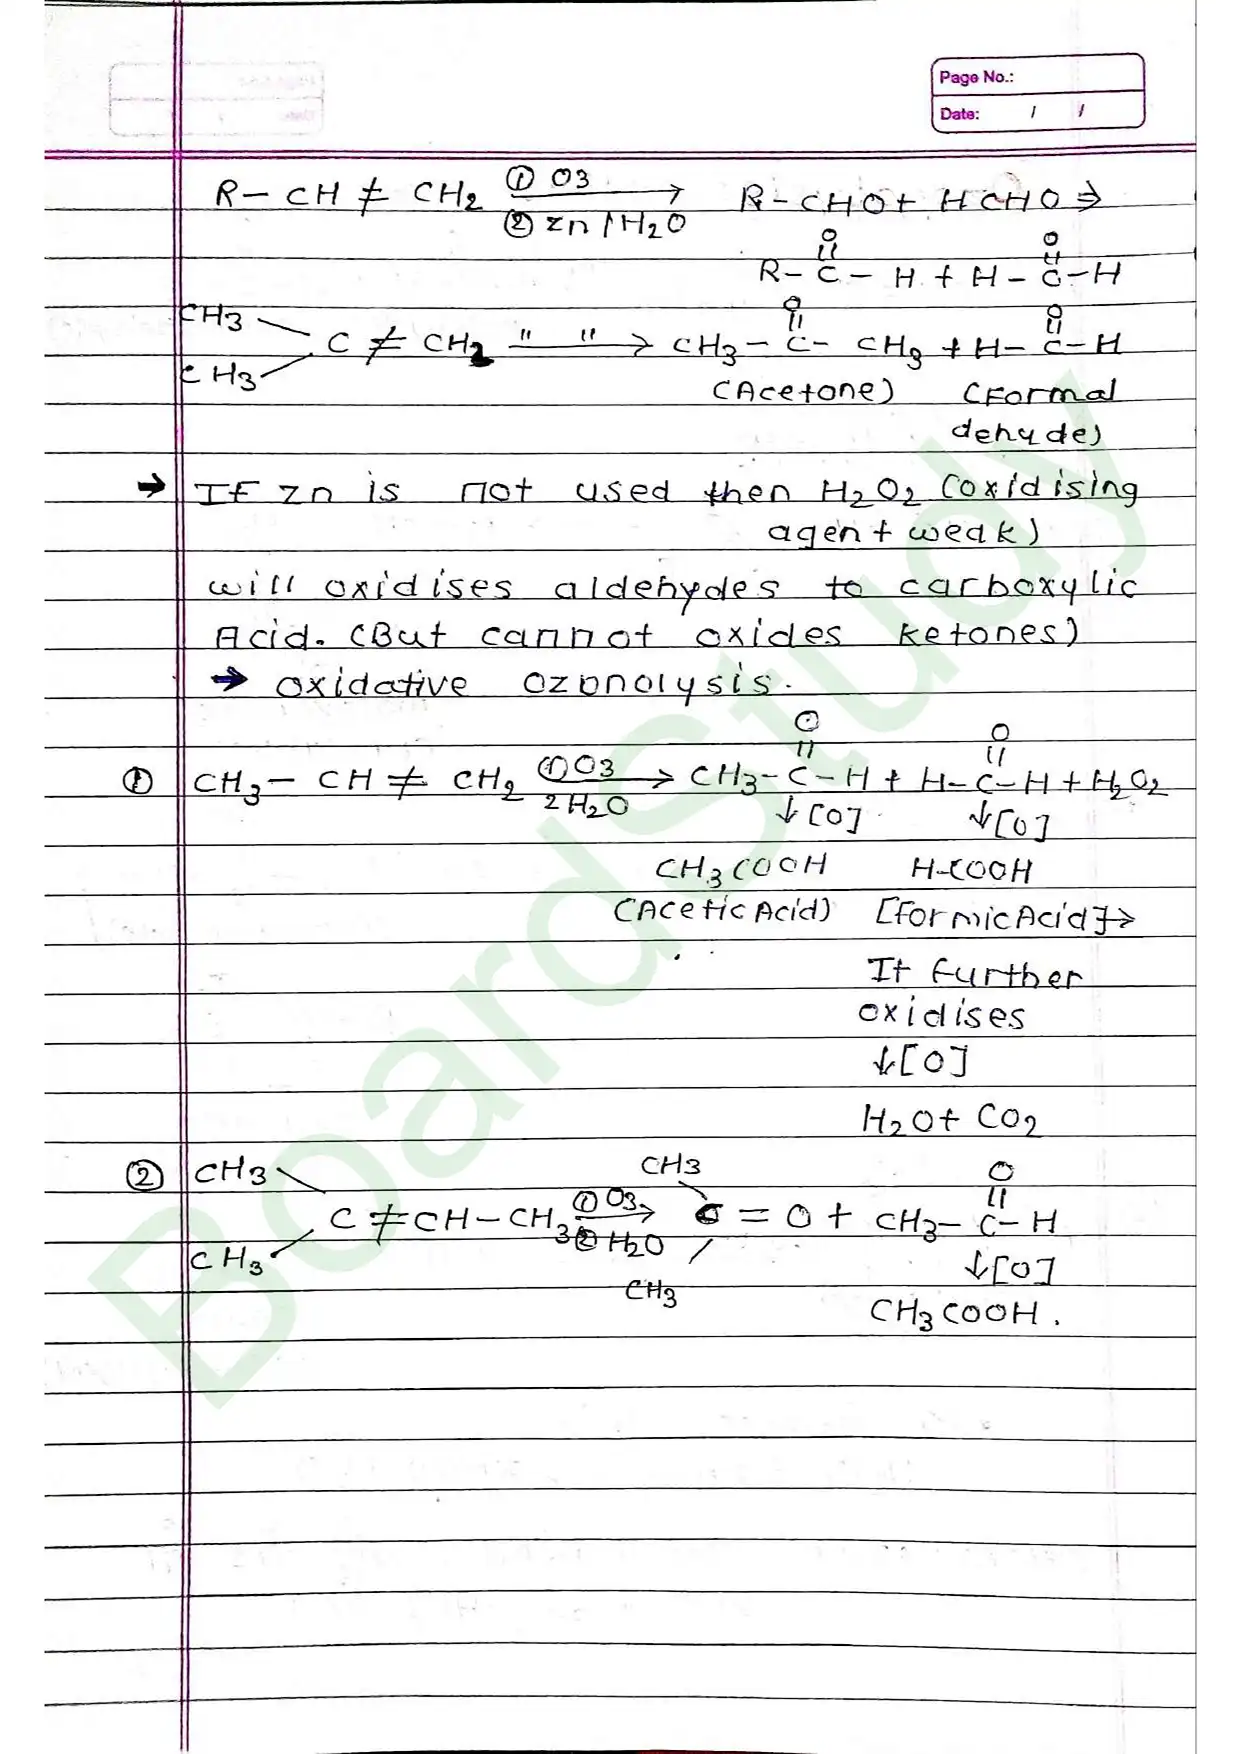 Page No.:
Date: / /
R- CH ≠ CH2 ① O3 → ② Zn / H2O R-CHO + HCHO ⇒
O O
R- C - H + H - C - H
CH3 O O
C ≠ CH2 " " → CH3 - C - CH3 + H- C - H
CH3
(Acetone) (Formal
dehyde)
→ If Zn is not used then H2O2 (oxidising
agent weak)
will oxidises aldehydes to carboxylic
Acid. (But cannot oxides ketones)
→ oxidative ozonolysis.
O O
① CH3- CH ≠ CH2 ① O3 → 2 H2O CH3-C-H + H-C-H + H2O2
↓[O] ↓[O]
CH3COOH H-COOH
(Acetic Acid) [Formic Acid]→
It further
oxidises
↓[O]
H2O + CO2
② CH3 CH3 O
C ≠ CH-CH3 ① O3 → ② H2O C = O + CH3- C- H
CH3 ↓[O]
CH3 CH3COOH.
BoardStudy